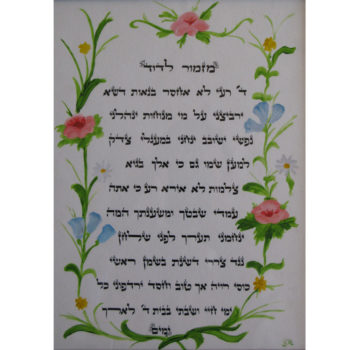 "מזמור לדוד"
ד' רעי לא אחסר בנאות דשא
ירביצני על מי מנוחות ינהלני
נפשי ישובב ינחני במעגלי צדק
למען שמו גם כי אלך בגיא
צלמות לא אירא רע כי אתה
עמדי שבטך ומשענתך המה
ינחמני תערך לפני שלחן
נגד צררי דשנת בשמן ראשי
כוסי רויה אך טוב וחסד ירדפוני כל
ימי חיי ושבתי בבית ד' לארך
ימים